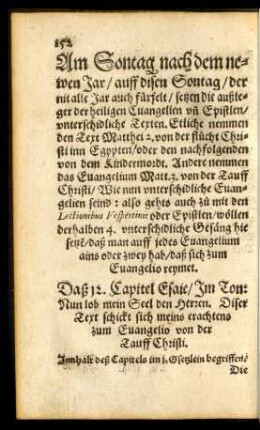 152
Am Sontag nach dem ne-
wen Jar / auff disen Sontag / der
nit alle Jar auch fürfelt / setzen die außle-
ger der heiligen Euangelien vñ Epistlen /
vnterschidliche Texten. Etliche nemmen
den Text Matthei 2. von der flücht Chri-
sti inn Egypten / oder den nachfolgenden
von dem Kindermordt. Andere nemmen
das Euangelium Matt.3. von der Tauff
Christi / Wie nun vnterschidliche Euan-
gelien seind : also gehts auch zü mit den
Lectionibus Vespertinis oder Epistlen / wöllen
derhalben 4. vnterschidliche Gesäng hie
setzē / daß man auff jedes Euangelium
ains oder zwey hab / daß sich zum
Euangelio reymet.
Daß 12. Capitel Esaie / Im Ton:
Nun lob mein Seel den Herren. Diser
Text schickt sich meins erachtens
zum Euangelio von der
Tauff Christi.
Innhalt deß Capitels im 1. Gsetzlein begriffen.
Die